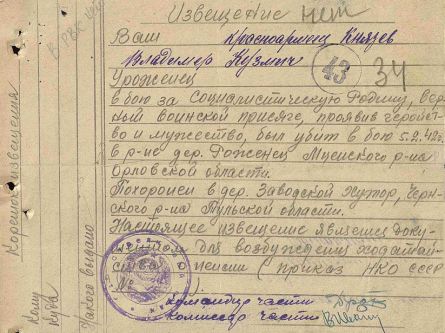 Извещение нет
В РВК
Ваш красноармеец Князев
Владимир Кузмич
Уроженец
43
34
в бою за Социалистическую Родину, вер-
ный воинской присяге, проявив геройст-
во и мужество, был убит в бою 5.2.42г.
в р-не дер. Роженец Мценского р-на
Орловской области.
Похоронен в дер. Заводской Хутор, Черн-
ского р-на Тульской области.
Настоящее извещение является доку-
ментом для возбуждения ходатай-
пенсии (приказ НКО СССР
№
командир части
комиссар части
Корешок извещения
Кому
Куда
Какого выдано